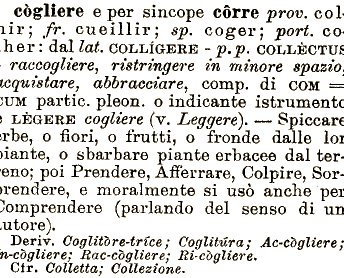 còglìere e per sincope còrre prov. col-
nir; fr. cueillir; sp. coger; port. co-
her: dal lat. COLLÍGERE - p. p. COLLÈCTUS
- raccogliere, ristringere in minore spazio,
acquistare, abbracciare, comp. di COM =
CUM partic. pleon. o indicante istrumento
e LÈGERE cogliere (v. Leggere). — Spiccare
erbe, o fiori, o frutti, o fronde dalle lor
piante, o sbarbare piante erbacee dal ter-
reno; poi Prendere, Afferrare, Colpire, Sor-
prendere, e moralmente si usò anche per
Comprendere (parlando del senso di un
autore).
Deriv. Coglitòre-trìce; Coglitúra; Ac-còglìere;
In-còglìere; Rac-còglìere; Ri-còglìere.
Cfr. Colletta; Collezione.